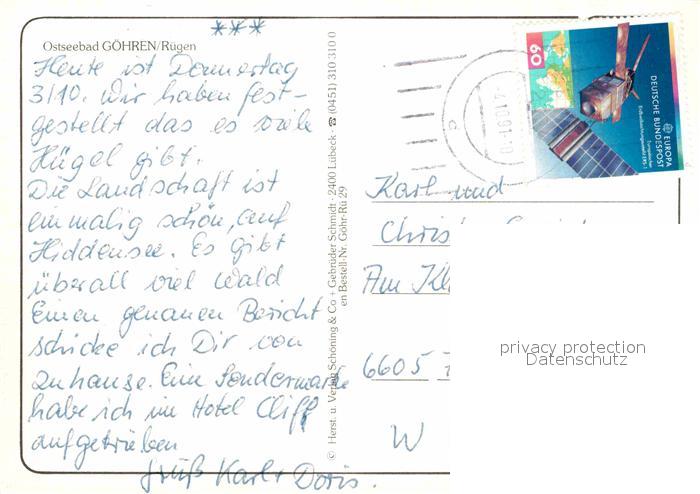 ***
Ostseebad GÖHREN/Rügen
Heute ist Donnerstag
3/10. Wir haben fest-
gestellt das es viele
Hügel gibt.
Die Landschaft ist
einmalig schön, auf
Hiddensee. Es gibt
überall viel Wald
Einen genauen Bericht
schicke ich Dir von
zuhause. Eine Sondermarke
habe ich im Hotel Cliff
aufgetrieben
Gruß Karl + Doris.
© Herst. u. Verlag Schöning & Co + Gebrüder Schmidt · 2400 Lübeck · ☎ (0451) 310 310 0
en Bestell-Nr. Göhr-Rü 29
60
DEUTSCHE BUNDESPOST
EUROPA
Europäischer
Erdbeobachtungssatellit ERS-1
Karl und
Chris
Am Kl
6605
W
privacy protection
Datenschutz